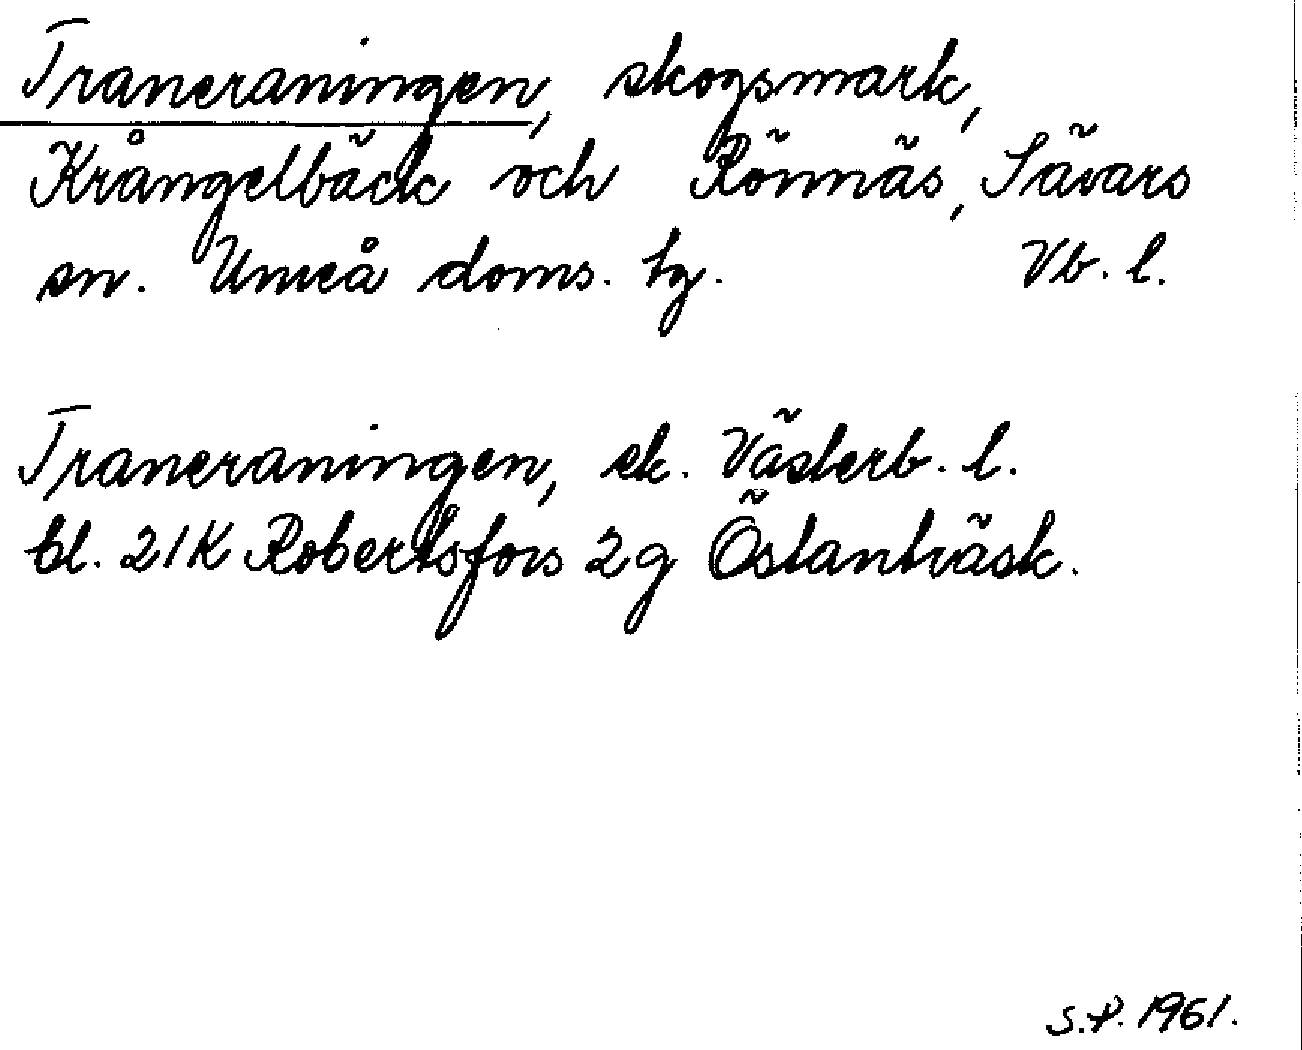 Traneraningen, skogsmark,
Krångelbäck och Rönnäs, Sävars
sn. Umeå doms. tg. Vb. l.
Traneraningen, ek. Västerb. l.
bl. 21K Robertsfors 2g Östanträsk.
S.P. 1961.